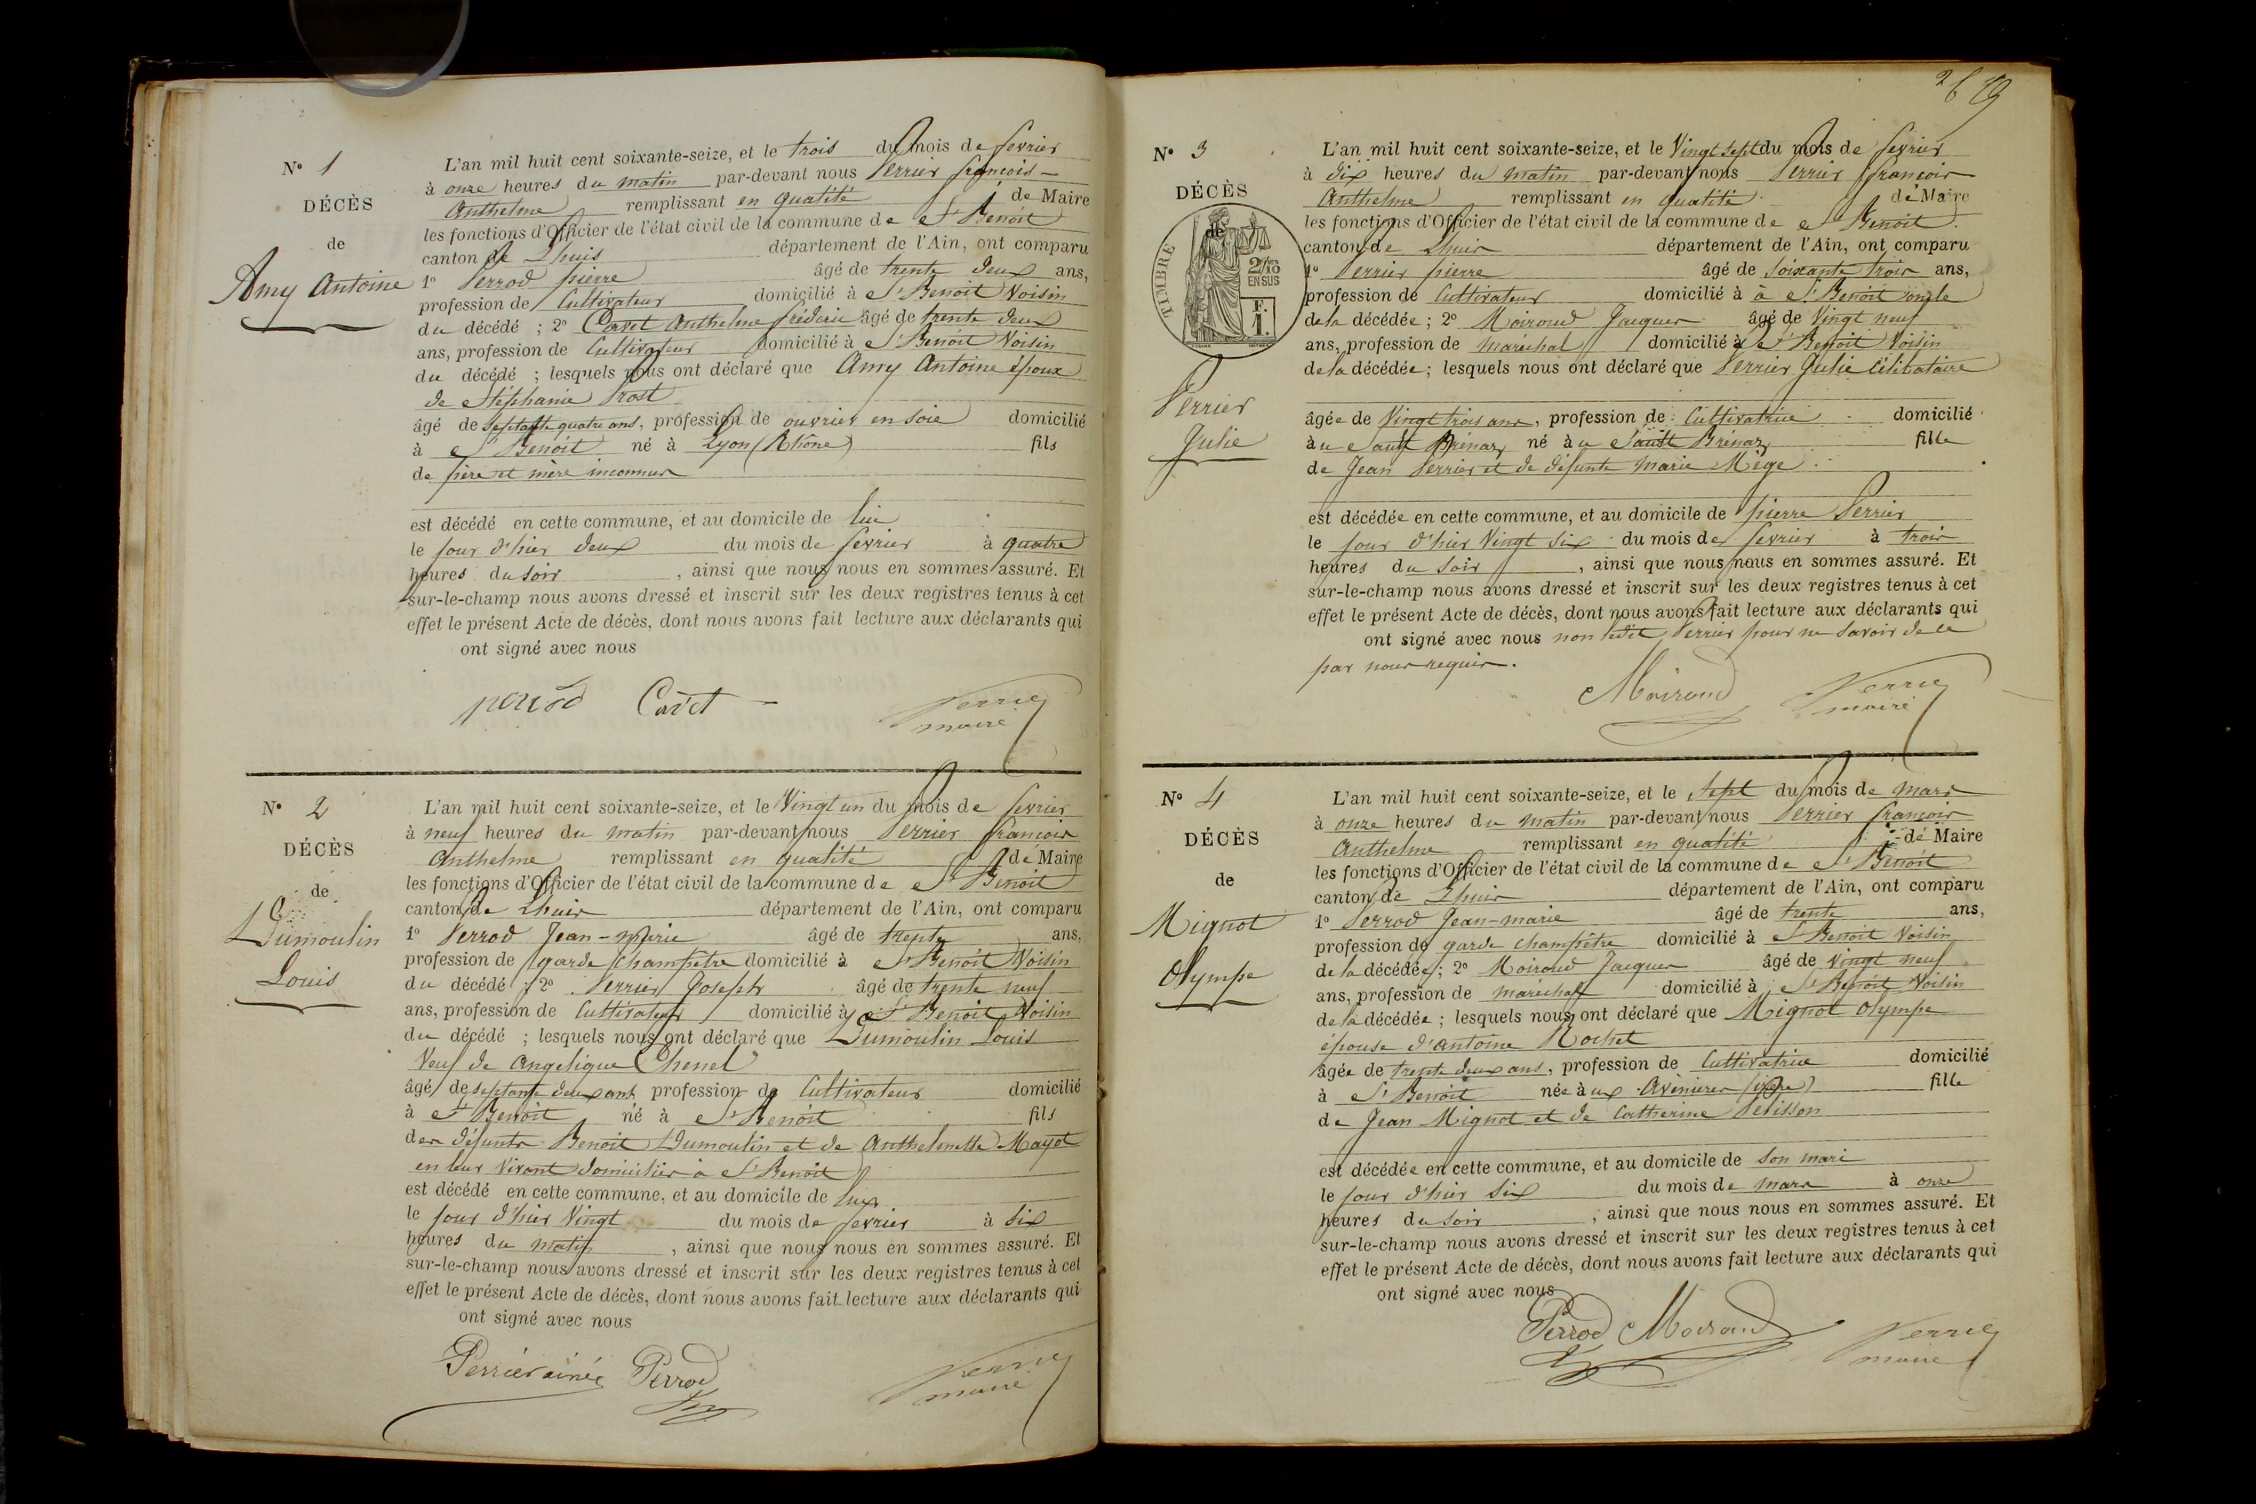 N° 1
DÉCÈS
de
Amy Antoine
L'an mil huit cent soixante-seize, et le trois du mois de fevrier
à onze heures du matin par-devant nous Perrier françois
Anthelme remplissant en qualité de Maire
les fonctions d'Officier de l'état civil de la commune de St Benoit
canton de Lhuis département de l'Ain, ont comparu
1° Perrod pierre âgé de trente deux ans,
profession de Cultivateur domicilié à St Benoit Voisin
du décédé ; 2° Cadet Anthelme fréderic âgé de trente deux
ans, profession de Cultivateur domicilié à St Benoit Voisin
du décédé ; lesquels nous ont déclaré que Amy Antoine époux
de Stéphanie Prost
âgé de septante quatre ans, profession de ouvrier en soie domicilié
à St Benoit né à Lyon (Rhône) fils
de père et mère inconnus
est décédé en cette commune, et au domicile de lui
le jour d'hier deux du mois de fevrier à quatre
heures du soir , ainsi que nous nous en sommes assuré. Et
sur-le-champ nous avons dressé et inscrit sur les deux registres tenus à cet
effet le présent Acte de décès, dont nous avons fait lecture aux déclarants qui
ont signé avec nous
perrod Cadet Perrier
maire
N° 2
DÉCÈS
de
Dumoulin
Louis
L'an mil huit cent soixante-seize, et le Vingt un du mois de fevrier
à neuf heures du matin par-devant nous Perrier françois
Anthelme remplissant en qualité de Maire
les fonctions d'Officier de l'état civil de la commune de St Benoit
canton de Lhuis département de l'Ain, ont comparu
1° Perrod Jean-Marie âgé de trente ans,
profession de garde champêtre domicilié à St Benoit Voisin
du décédé ; 2° Perrier Joseph âgé de trente neuf
ans, profession de Cultivateur domicilié à St Benoit Voisin
du décédé ; lesquels nous ont déclaré que Dumoulin Louis
Veuf de Angelique Chenel
âgé de septante deux ans profession de Cultivateur domicilié
à St Benoit né à St Benoit fils
des défunts Benoit Dumoulin et de Anthelmette Mayot
en leur vivant domiciliés à St Benoit
est décédé en cette commune, et au domicile de lui
le jour d'hier Vingt du mois de fevrier à six
heures du matin , ainsi que nous nous en sommes assuré. Et
sur-le-champ nous avons dressé et inscrit sur les deux registres tenus à cet
effet le présent Acte de décès, dont nous avons fait lecture aux déclarants qui
ont signé avec nous
Perrier ainé Perrod Perrier
maire
N° 3
DÉCÈS
de
TIMBRE
2/10
EN SUS
F.
1.
Perrier
Julie
L'an mil huit cent soixante-seize, et le Vingt sept du mois de fevrier
à dix heures du matin par-devant nous Perrier françois
Anthelme remplissant en qualité de Maire
les fonctions d'Officier de l'état civil de la commune de St Benoit
canton de Lhuis département de l'Ain, ont comparu
1° Perrier pierre âgé de soixante trois ans,
profession de Cultivateur domicilié à à St Benoit oncle
de la décédée ; 2° Moiroud Jacques âgé de Vingt neuf
ans, profession de maréchal domicilié à St Benoit Voisin
de la décédée ; lesquels nous ont déclaré que Perrier Julie Célibataire
âgée de Vingt trois ans, profession de Cultivatrice domicilié
à u Sault Brénaz né à u Sault Brénaz fille
de Jean Perrier et de défunte Marie Mège
est décédée en cette commune, et au domicile de pierre Perrier
le jour d'hier Vingt six du mois de fevrier à trois
heures du soir , ainsi que nous nous en sommes assuré. Et
sur-le-champ nous avons dressé et inscrit sur les deux registres tenus à cet
effet le présent Acte de décès, dont nous avons fait lecture aux déclarants qui
ont signé avec nous non ledit Perrier pour ne savoir de ce
par nous requis.
Moiroud Perrier
maire
N° 4
DÉCÈS
de
Mignot
Olympe
L'an mil huit cent soixante-seize, et le sept du mois de mars
à onze heures du matin par-devant nous Perrier françois
Anthelme remplissant en qualité de Maire
les fonctions d'Officier de l'état civil de la commune de St Benoit
canton de Lhuis département de l'Ain, ont comparu
1° Perrod Jean-marie âgé de trente ans,
profession de garde champêtre domicilié à St Benoit Voisin
de la décédée ; 2° Moiroud Jacques âgé de vingt neuf
ans, profession de maréchal domicilié à St Benoit Voisin
de la décédée ; lesquels nous ont déclaré que Mignot Olympe
épouse d'Antoine Rochet
âgée de trente deux ans, profession de Cultivatrice domicilié
à St Benoit née à ux Avenieres (isère) fille
de Jean Mignot et de Catherine Pelisson
est décédée en cette commune, et au domicile de son mari
le jour d'hier six du mois de mars à onze
heures du soir , ainsi que nous nous en sommes assuré. Et
sur-le-champ nous avons dressé et inscrit sur les deux registres tenus à cet
effet le présent Acte de décès, dont nous avons fait lecture aux déclarants qui
ont signé avec nous
Perrod Moiroud Perrier
maire